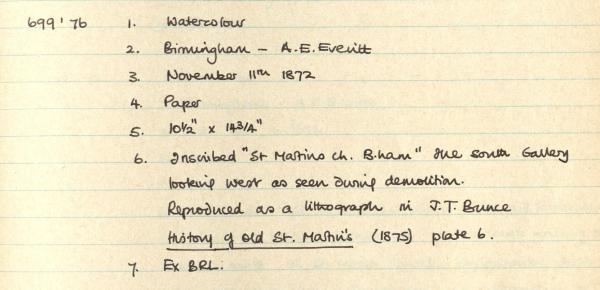 699'76 1. Watercolour
2. Birmingham - A.E. Everitt
3. November 11th 1872
4. Paper
5. 10½" x 14¾"
6. Inscribed "St Martins ch. B.ham" the south Gallery
looking west as seen during demolition.
Reproduced as a lithograph in J.T. Bunce
History of Old St. Martin's (1875) plate 6.
7. Ex BRL.